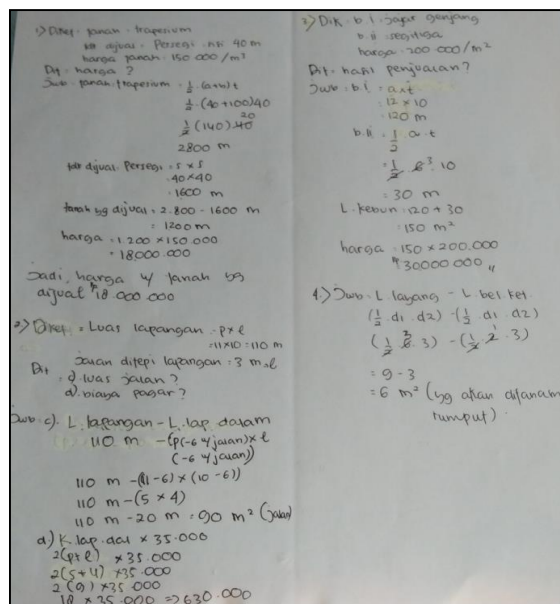 1) Diket : tanah : trapesium
tdk dijual : Persegi : sisi 40 m
harga tanah : 150.000/m²
Dit : harga ?
Jwb : tanah trapesium = ½ (a+b) t
½ (40+100) 40
½ (140) 40 20
2800 m
tdk dijual : Persegi = s × s
= 40×40
= 1600 m
tanah yg dijual = 2.800 - 1600 m
= 1200 m
harga = 1.200 × 150.000
= 18.000.000
Jadi, harga u/ tanah yg
dijual 18.000.000
2) Diket = Luas lapangan = p×l
= 11×10 = 110 m
Jalan ditepi lapangan = 3 m
Dit : c) luas jalan ?
d) biaya pagar ?
Jwb : c) L. lapangan - L. lap. dalam
110 m - (p(-6 u/ jalan) × l
(-6 u/ jalan))
110 m - (11-6) × (10-6))
110 m - (5 × 4)
110 m - 20 m = 90 m² (jalan)
d) K lap. dal × 35.000
2(p+l) × 35.000
2(5+4) × 35.000
2 (9) × 35.000
18 × 35.000 => 630.000
3) Dik : b. I : Jajar genjang
b. II : segitiga
harga : 200.000/m²
Dit : hasil penjualan ?
Jwb : b. I = a × t
= 12 × 10
= 120 m
b. II = ½ a . t
= ½ 6 3 . 10
= 30 m
L. kebun = 120 + 30
= 150 m²
harga = 150 × 200.000
30.000.000 //
4) Jwb = L. layang - L bel. ket.
(½ . d1 . d2) - (½ . d1 . d2)
(½ 6 3 . 3) - (½ 2 1 . 3)
= 9 - 3
= 6 m² (yg akan ditanam
rumput)